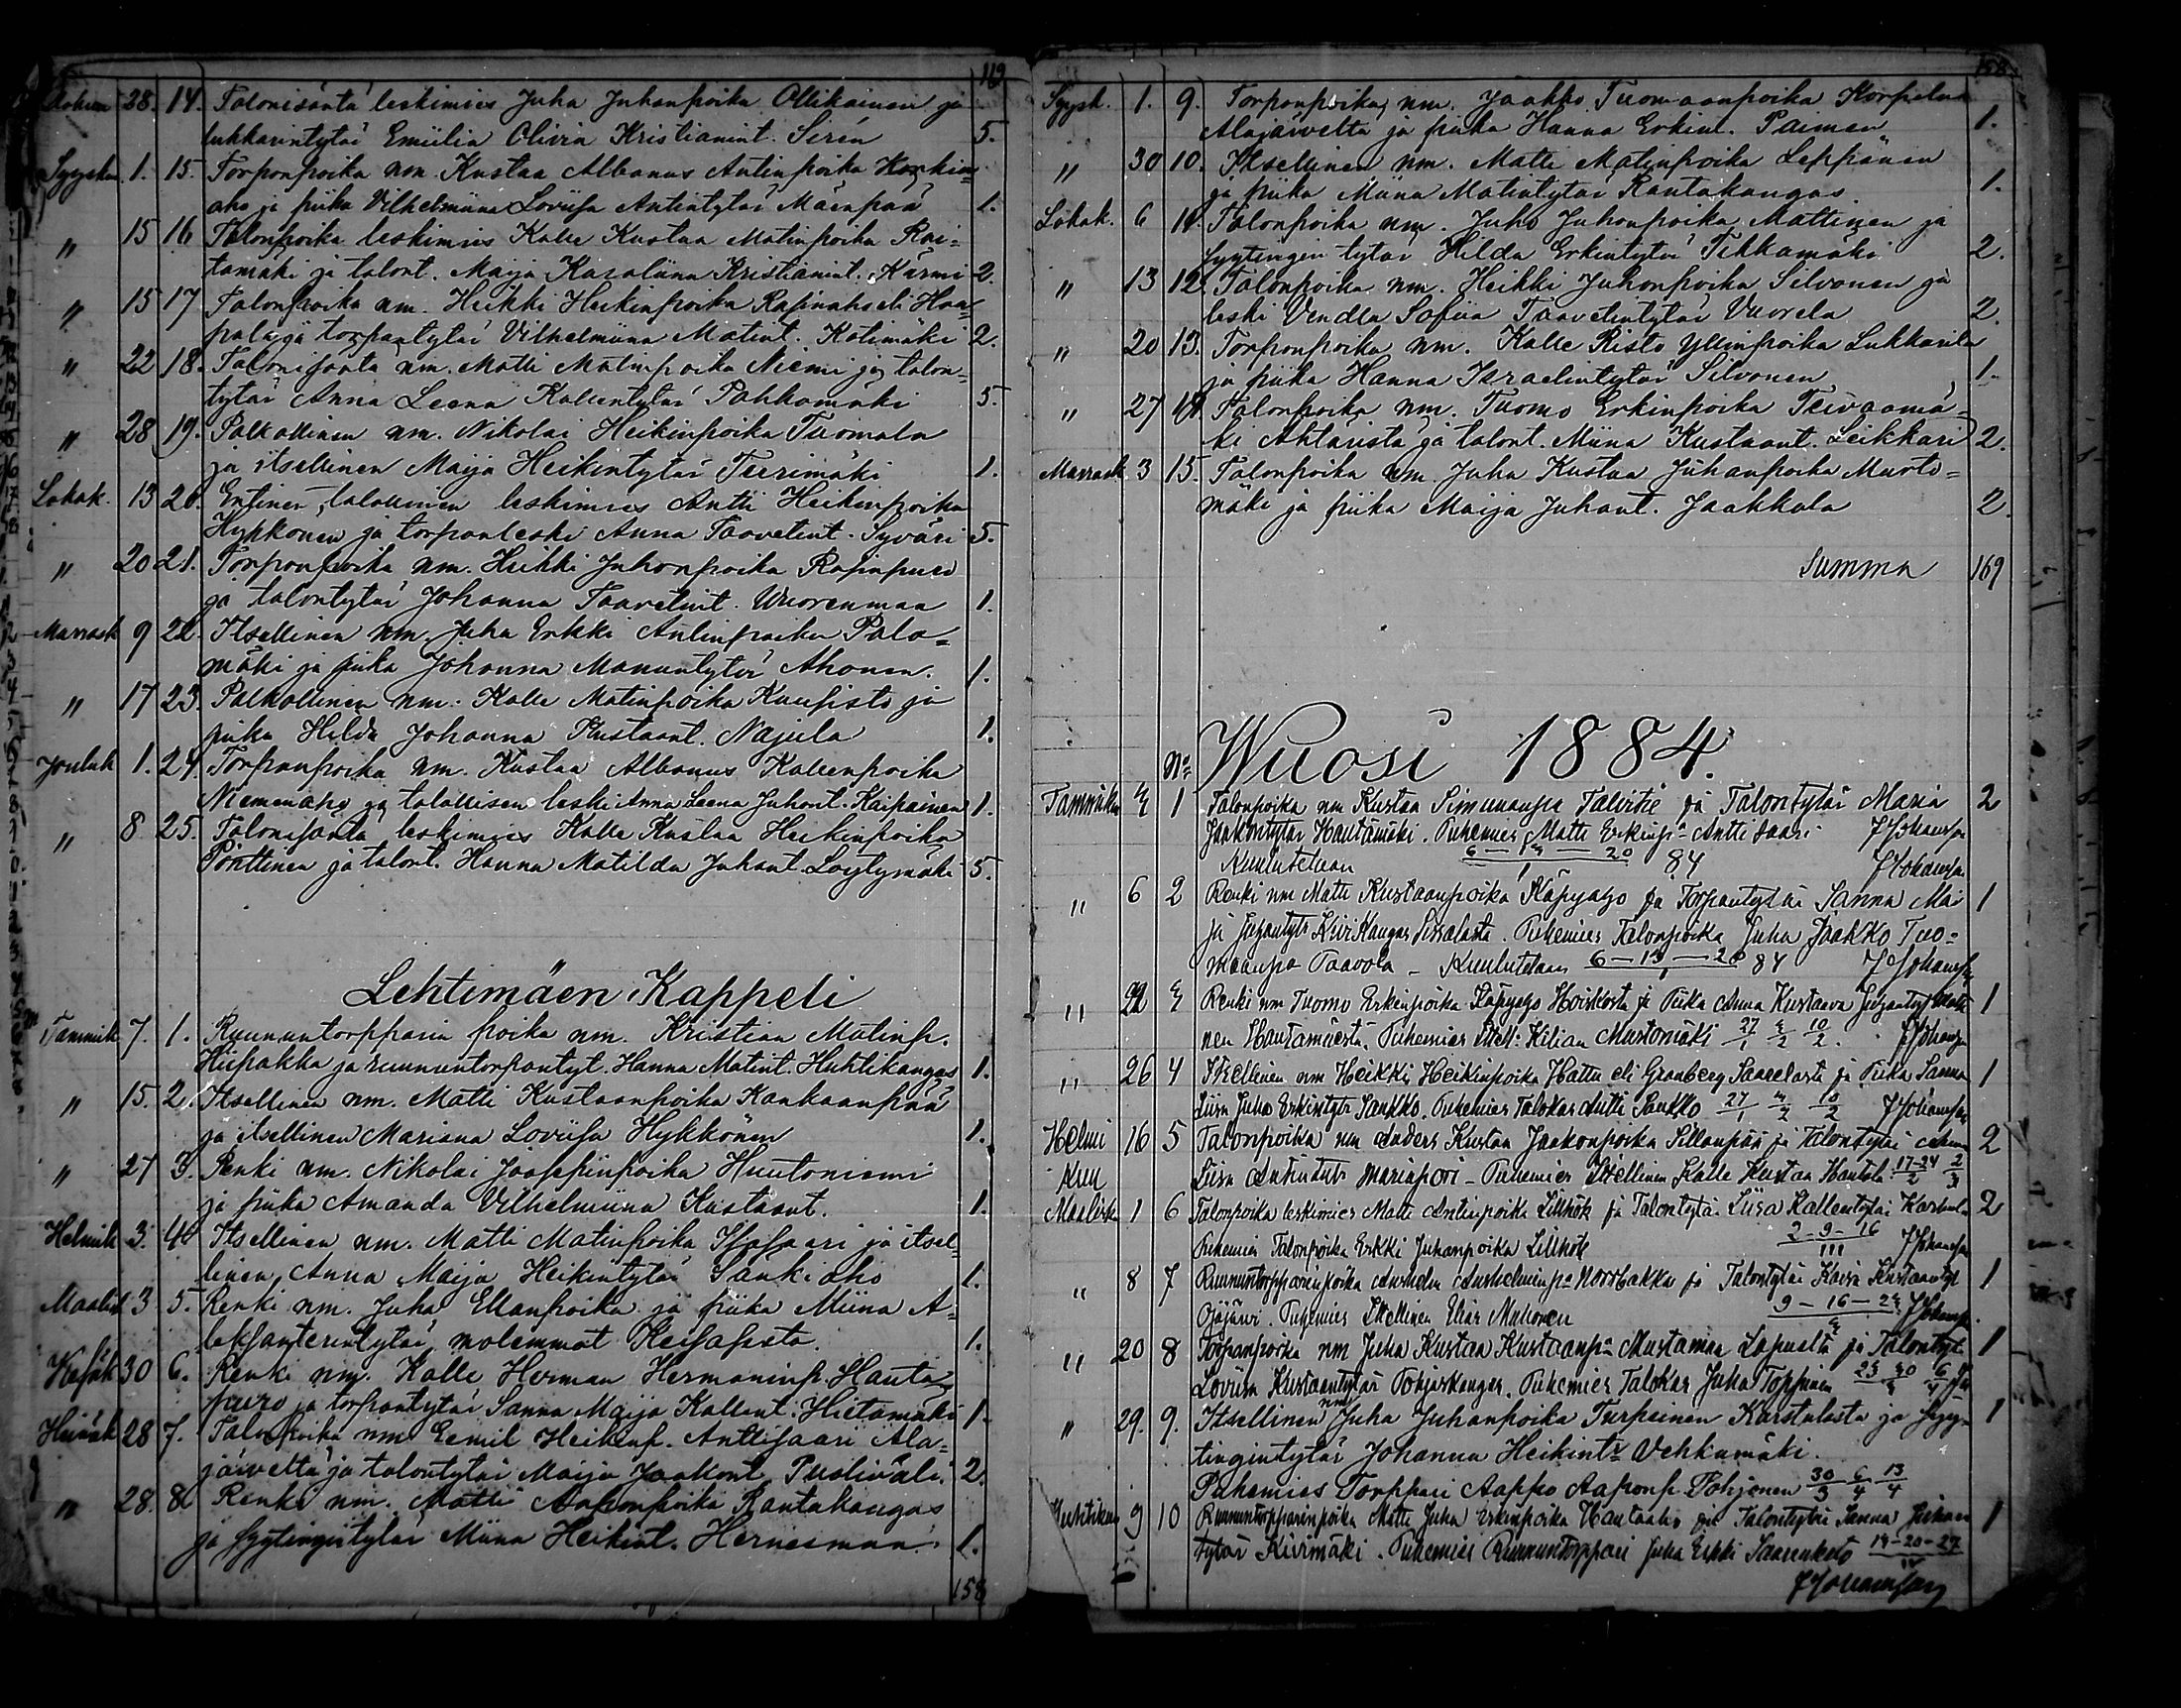 119
Elokuu 28. 14. Talonisäntä leskimies Juha Juhanpoika Ollikainen ja
lukkarintytär Emiilia Olivia Kristianint. Sirén 5.
Syysku 1. 15. Torponpoika nm. Kustaa Albanus Antinpoika
aho ja piika Vilhelmiina Loviisa Antintytär Mäenpää 1.
" 15 16 Talonpoika leskimies Kalle Kustaa Matinpoika Rai=
tamäki ja talont. Maija Karoliina Kristianint. Kärmi 2.
" 15 17 Talonpoika nm. Heikki Heikinpoika eli Haa=
pala ja torpantytär Vilhelmiina Matint. Kotimäki 2.
" 22 18. Talonisäntä nm. Matti Matinpoika Niemi ja talon=
tytär Anna Leena Kallentytär Pahkamäki 5.
" 28 19. Palkollinen nm. Nikolai Heikinpoika Tuomala
ja itsellinen Maija Heikintytär Teerimäki 1.
Lokak. 13 20. Entinen talollinen leskimies Antti Heikinpoika
Hykkönen ja torpanleski Anna Taavetint. Syväri 5.
" 20 21. Torponpoika nm. Heikki Juhonpoika Rapapuro
ja talontytär Johanna Taavetint. Wuorenmaa 1.
Marrask 9 22. Itsellinen nm. Juha Erkki Antinpoika Palo=
mäki ja piika Johanna Manuntytär Ahonen. 1.
" 17 23. Palkollinen nm. Kalle Matinpoika Kuusisto ja
piika Hilda Johanna Kustaant. Najula 1.
Jouluk 1. 24. Torpanpoika nm. Kustaa Albanus Kallenpoika
Niemenaho ja talollisen leski Anna Leena Juhont. Kaipainen 1.
" 8 25. Talonisäntä leskimies Kalle Kustaa Heikinpoika
Pönttinen ja talont. Hanna Matilda Juhant. Löytymäki 5.
Lehtimäen Kappeli
Tammik 7. 1. Ruununtorpparin poika nm. Kristian Matinp.
Hiipakka ja ruununtorpantyt. Hanna Matint. Huhtikangas 1.
" 15. 2. Itsellinen nm. Matti Kustaanpoika Kankaanpää
ja itsellinen Mariana Loviisa Hykkönen 1.
" 27 3. Renki nm. Nikolai Joosepinpoika Huntoniemi
ja piika Amanda Vilhelmiina Kustaant. 1.
Helmik 3. 4. Itsellinen nm. Matti Matinpoika ja itsel=
linen Anna Maija Heikintytär Sankiaho 1.
Maalisk 3 5. Renki nm. Juha Ellanpoika ja piika Miina A=
leksanterintytär, molemmat 1.
Kesäk 30 6. Renki nm. Kalle Herman Hermaninp. Hauta=
puro ja torpantytär Sanna Maija Kallent. Hietamäki 1.
Heinäk 28 7. Talonpoika nm. Eemil Heikinp. Anttisaari Ala=
järveltä ja talontytär Maija Jaakont. Puoliväli. 2.
" 28. 8. Renki nm. Matti Aaponpoika Rantakangas
ja syytingintytär Miina Heikint. Hernesmaa. 1.
158
158
Syysk. 1. 9. Torponpoika nm. Jaakko Tuomaanpoika Korpela
Alajärveltä ja piika Hanna Erkint. Paimen 1.
" 30 10. Itsellinen nm. Matti Matinpoika Leppänen
ja piika Miina Matintytär Rantakangas. 1.
Lokak. 6 11. Talonpoika nm. Juho Juhonpoika Mattinen ja
syytingin tytär Hilda Erkintytär Tikkamäki 2.
" 13 12. Talonpoika nm. Heikki Juhonpoika Silvonen ja
leski Vendla Sofiia Taavetintytär Vuorela 2.
" 20 13. Torponpoika nm. Kalle Risto Yllinpoika Lukkarila
ja piika Hanna Israelintytär Silvonen 1.
" 27 14. Talonpoika nm. Tuomo Erkinpoika Teivaamä=
ki Ahtärista ja talont. Miina Kustaant. Leikkari 2.
Marrask 3 15. Talonpoika nm. Juha Kustaa Juhanpoika Musto=
mäki ja piika Maija Juhant. Jaakkola 2.
Summa 169
No Wuosi 1884.
Tammikuu 4 1 Talonpoika nm Kustaa Simunanpa Talvitie ja Talontytär Maria 2
Jaakontytär Hautamäki. Puhemies Matti Erkinp. Antti saari JJohansson
Kuulutetaan 6 - 13 - 20 84 JJohansson
" 6 2 Renki nm Matti Kustaanpoika Käpyaho ja Torpantytär Sanna Mai 1
ja Juhantytr Kivikangas . Puhemies Talonpoika Juha Jaakko Tuo=
maanpa Paavola - Kuulutetaan 6-13-20 84 JJohansson
" 22 3 Renki nm Tuomo Erkinpoika Käpyaho Hoiskosta ja Piika Anna Kustaava 1
nen Hautamäestä. Puhemies Itsell: Kilian Mustomäki 27/1 3/2 10/2 . JJohansson
" 26 4 Itsellinen nm Heikki Heikinpoika Hattu eli Granberg ja Piika Sanna 1
Liisa Juha Erkintytr Sankko. Puhemies Talokas Antti Sankko 27/1 3/2 10/2 JJohansson
Helmi 16 5 Talonpoika nm Anders Kustaa Jaakonpoika Sillanpää ja Talontytär 2
kuu Liisa Antintytr . Puhemies Itsellinen Kalle Kustaa Hautala 17-24/2 2/3
Maalisku 1 6 Talonpoika leskimies Matti Antinpoika Lillhök ja Talontytär Liisa Kallentytär 2
Puhemies Talonpoika Erkki Juhanpoika Lillhök 2-9-16/III JJohansson
" 8 7 Ruununtorpparinpoika Anshelm Anshelminp: Norrbakka ja Talontytär Kaisa Kustaantyt 1
Ojajärvi. Puhemies Itsellinen Elias Muhonen 9-16-23 JJohansson
" 20 8 Torpanpoika nm Juha Kustaa Kustaanpa Mustamaa Lapualta ja Talontyt 1
Loviisa Kustaantytär Pohjoskangas. Puhemies Talokas Juha Toppinen 23 30/3 6/4
" 29. 9. Itsellinen nm Juha Juhanpoika Turpeinen Karstulasta ja syy= 1
tingintytär Johanna Heikintr Vehkamäki.
Puhemies Torppari Aappo Aaponp. Pohjonen 30/3 6/4 13/4
Huhtikuu 9 10 Ruununtorpparinpoika Matti Juha Erkinpoika Hautaaho ja Talontytär Sanna Juhan 1
tytär Kivimäki. Puhemies Ruununtorppari Juha Erkki Saarenketo 14-20-27/IV
JJohansson